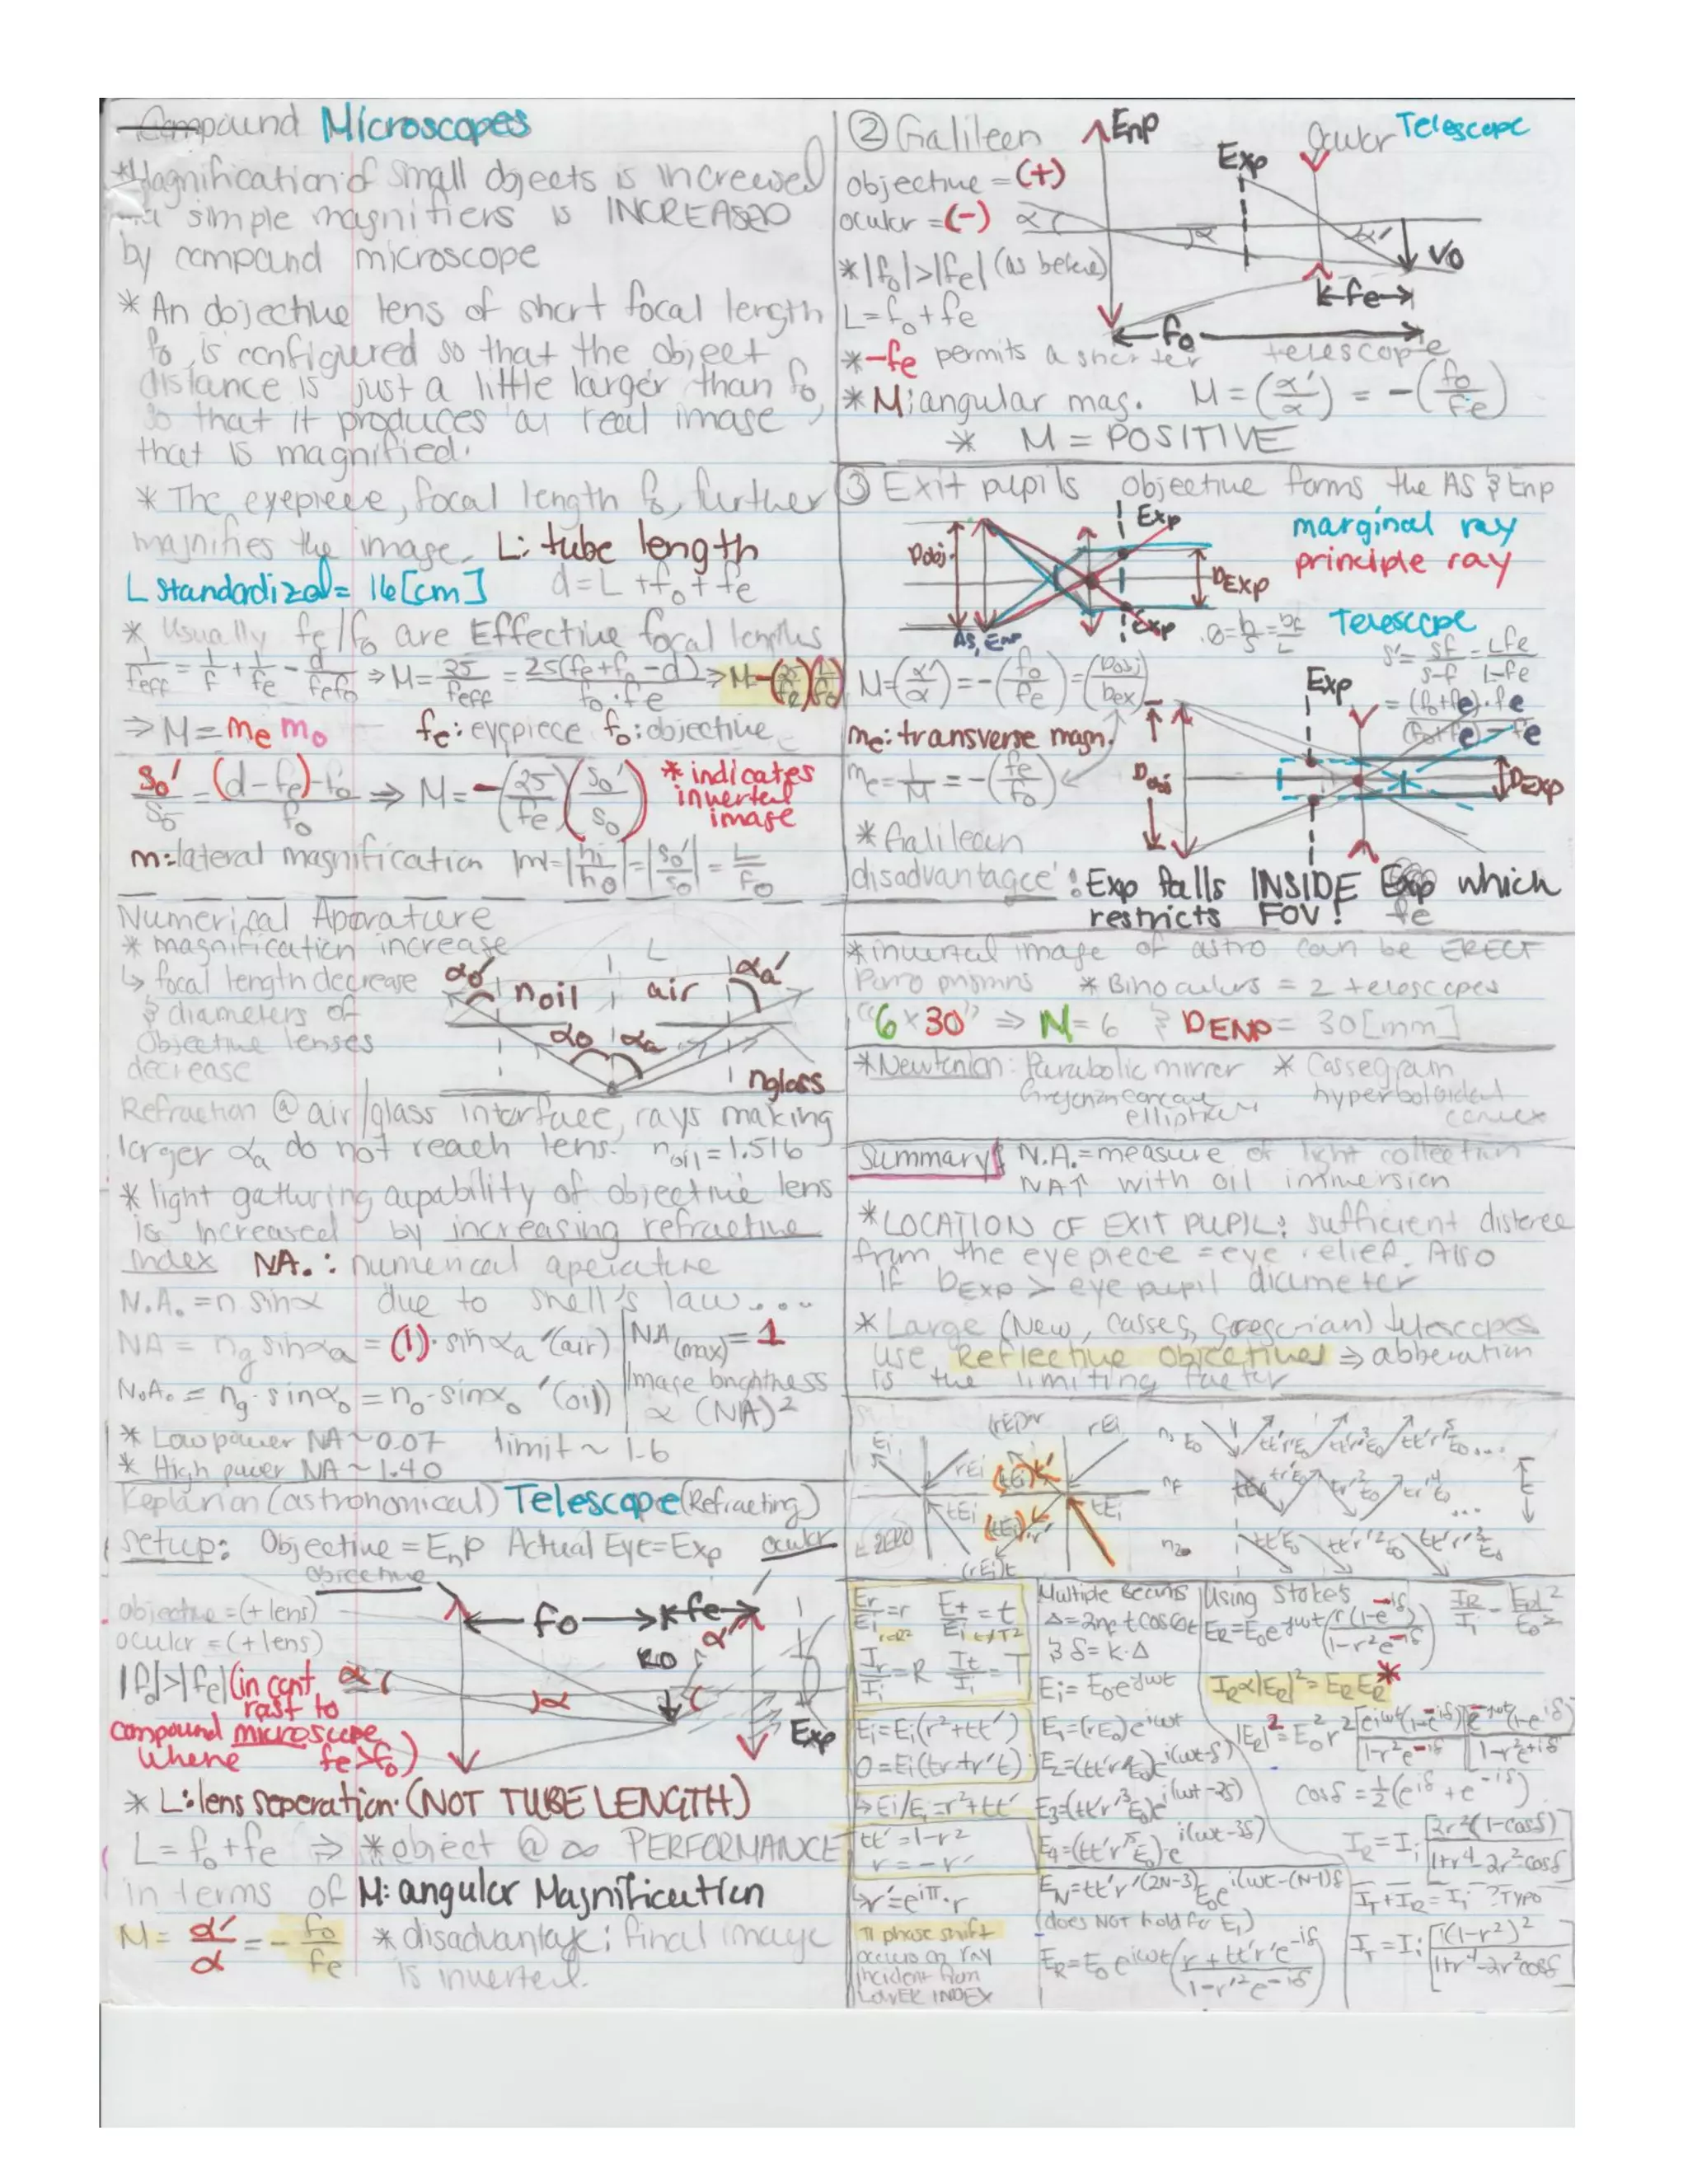 Compound Microscopes
*Magnification of small objects is increased
via simple magnifiers is INCREASED
by compound microscope
* An objective lens of short focal length
fo, is configured so that the object
distance is just a little larger than fo,
so that it produces a real image
that is magnified.
* The eyepiece, focal length fe, further
magnifies the image. L: tube length
L standardized = 16[cm] d = L + fo + fe
* Usually fe/fo are Effective focal lengths
1/feff = 1/f + 1/fe - d/fefo ⇒ M = 25/feff = 25(fe+fo-d)/fo·fe ⇒ M=-(25/fe)(L/fo)
⇒ M = me mo fe: eyepiece fo: objective
so'/so = (d-fe)-fo/fo ⇒ M = -(25/fe)(so'/so) * indicates
inverted
image
m=lateral magnification |m|=|hi/ho|=|so'/so|=L/fo
Numerical Aparature
* magnification increase
↳ focal length decrease
& diameters of
Objective lenses
decrease
αo' noil L air αa'
αo αa
nglass
Refraction @ air/glass interface, rays making
larger αa do not reach lens. noil=1.516
* light gathering capability of objective lens
is increased by increasing refractive
index NA.: numerical aperature
N.A. = n sinα due to snell's law....
NA = ng sinαa = (1)·sinαa' (air) NA(max) = 1
N.A. = ng·sinαo = no·sinαo' (oil) Image brightness
∝ (NA)²
* Low power NA~0.07 limit ~ 1.6
* High power NA ~ 1.40
Keplarian (astronomical) Telescope (Refracting)
setup: Objective = EnP Actual Eye = Exp ocular
objective
objective = (+lens)
ocular = (+lens)
fo fe
α'
α α
Exp
|fo|>|fe| (in cont
rast to
compound microscope
where fe>fo)
* L: lens seperation. (NOT TUBE LENGTH)
L = fo+fe ⇒ *object @ ∞ PERFORMANCE
in terms of M: angular Magnification
M = α'/α = - fo/fe * disadvantage: final image
is inverted.
② Galilean EnP Exp Ocular Telescope
objective = (+)
ocular = (-) α α α' VO
* |fo|>|fe| (as before)
L = fo + fe
fe
fo
* -fe permits a shorter telescope
* M: angular mag. M = (α'/α) = -(fo/fe)
* M = POSITIVE
③ Exit pupils objective forms the AS & Enp
Exp marginal ray
principle ray
Dobj DExp
AS, Enp Exp
Telescope
s' = sf/s-f = Lfe/L-fe
= (fo+fe)·fe/(fo+fe)-fe
M=(α'/α)=-(fo/fe)=(Dobj/Dex)
Exp
me: transverse magn.
me = 1/M = -(fe/fo)
Dobj DExp
* Galilean
disadvantage: Exp falls INSIDE which
restricts FOV! fe
* inverted image of astro can be ERECT
Porro prisms * Binoculars = 2 telescopes
"6 x 30" ⇒ M=6 & DENP = 30[mm]
* Newtonion: Parabolic mirror * Cassegrain
Gregorian concave hyperboloidal
elliptical convex
Summary: N.A. = measure of light collection
NA↑ with oil immersion
* LOCATION OF EXIT PUPIL: sufficient distance
from the eyepiece = eye relief. Also
If DEXP > eye pupil diameter
* Large (New, Casses, Gregorian) telescopes
use Reflective Objectives ⇒ abberation
is the limiting factor
Ei rEi tEi
(rEi)r rEi
(tEi)t'
(tEi)r' tEi
(rEi)t
n1 E0 tt'r'E0 tt'r'³E0 tt'r'⁵E0 ...
nf
n2 tt'E0 tt'r'²E0
Er/Ei = r Et/Ei = t
Ir/Ii = R It/Ii = T
Ei = Ei(r²+tt')
0 = Ei(tr+r't)
↳ Ei/Ei = r²+tt'
tt' = 1-r²
r = -r'
↳ r' = e^iπ·r
π phase shift
occurs on ray
incident from
LOWER INDEX
Multiple Beams
Δ = 2nf t cosθt
& δ = k·Δ
Ei = E0e^jωt
E1 = (rE0)e^iωt
E2 = (tt'r'E0)e^i(ωt-δ)
E3 = (tt'r'³E0)e^i(ωt-2δ)
E4 = (tt'r'⁵E0)e^i(ωt-3δ)
EN = tt'r'^(2N-3)E0e^i(ωt-(N-1)δ
(does NOT hold for E1)
ER = E0e^iωt(r + tt'r'e^-iδ/1-r'²e^-iδ)
Using Stokes
ER = E0e^jωt(r(1-e^-iδ)/1-r²e^-iδ) IR/Ii = |ER|²/E0²
IR∝|ER|² = ER ER*
|ER|² = E0²r²[e^iωt(1-e^-iδ)/1-r²e^-iδ][e^-iωt(1-e^iδ)/1-r²e^+iδ]
cosδ = ½(e^iδ + e^-iδ)
IR = Ii[2r²(1-cosδ)/1+r⁴-2r²cosδ]
IT + IR = Ii ?Typo
IT = Ii[(1-r²)²/1+r⁴-2r²cosδ]